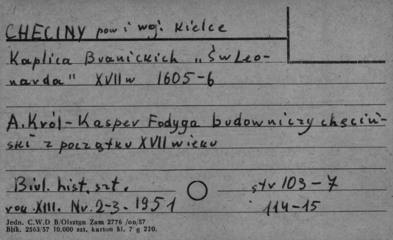 CHĘCINY pow i woj. Kielce
Kaplica Branickich „Św Leo-
narda" XVII w 1605-6
A. Król - Kasper Fodyga budowniczy chęciń-
ski z początku XVII wieku
Biul. hist. szt. str 103-7
rok XIII. Nr. 2-3. 1951 114-15
Jedn. C.W.D B/Olsztyn Zam 2776 /on/57
Błsk. 2563/57 10.000 szt, karton kl. 7 g 220.